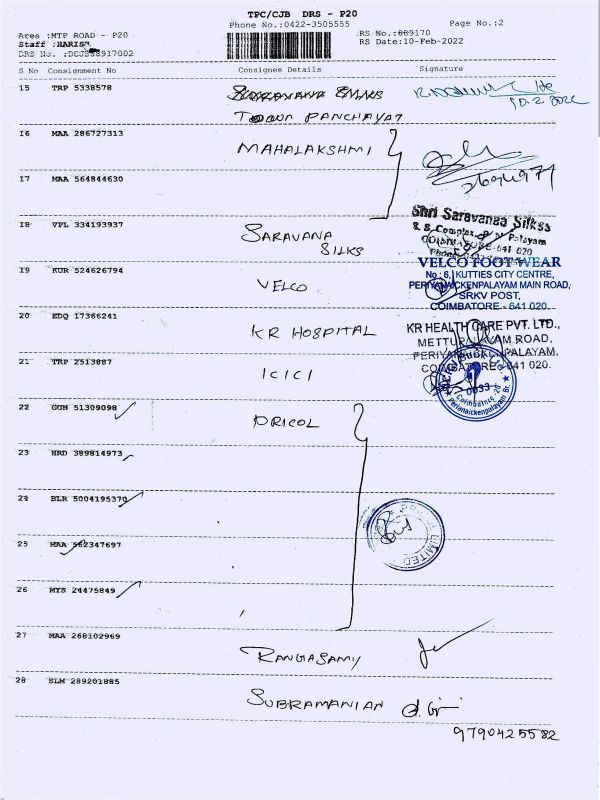 TPC/CJB DRS - P20
Phone No.:0422-3505555
Page No.:2
Area :MTP ROAD - P20
RS No.:889170
Staff :HARISH
RS Date:10-Feb-2022
S No Consignment No Consignee Details Signature
15 TRP 5338578
10.2.2022
TOWN PANCHAYAT
16 MAA 286727313 MAHALAKSHMI
17 MAA 564844630
18 VPL 334193937 SARAVANA
SILKS
Shri Saravanaa Silkss
S. S. Complex, P N Palayam
COIMBATORE-641 020
19 KUR 524626794 VELCO
VELCO FOOT WEAR
No : 6, KUTTIES CITY CENTRE,
PERIYANAICKENPALAYAM MAIN ROAD,
SRKV POST,
COIMBATORE - 641 020.
20 EDQ 17366241 KR HOSPITAL
KR HEALTH CARE PVT. LTD.,
METTUPALAYAM ROAD,
PERIYANAICKENPALAYAM,
COIMBATORE - 641 020.
21 TRP 2513887 ICICI
0033
Coimbatore 20
Periyanaickenpalayam Br.
22 GGN 51309098 PRICOL
23 HRD 389814973
24 BLR 5004195370
PRICOL LIMITED
25 MAA 562347697
26 MYS 24475849
27 MAA 268102969 RANGASAMY
28 SLM 289201885 SUBRAMANIAN
9790425582